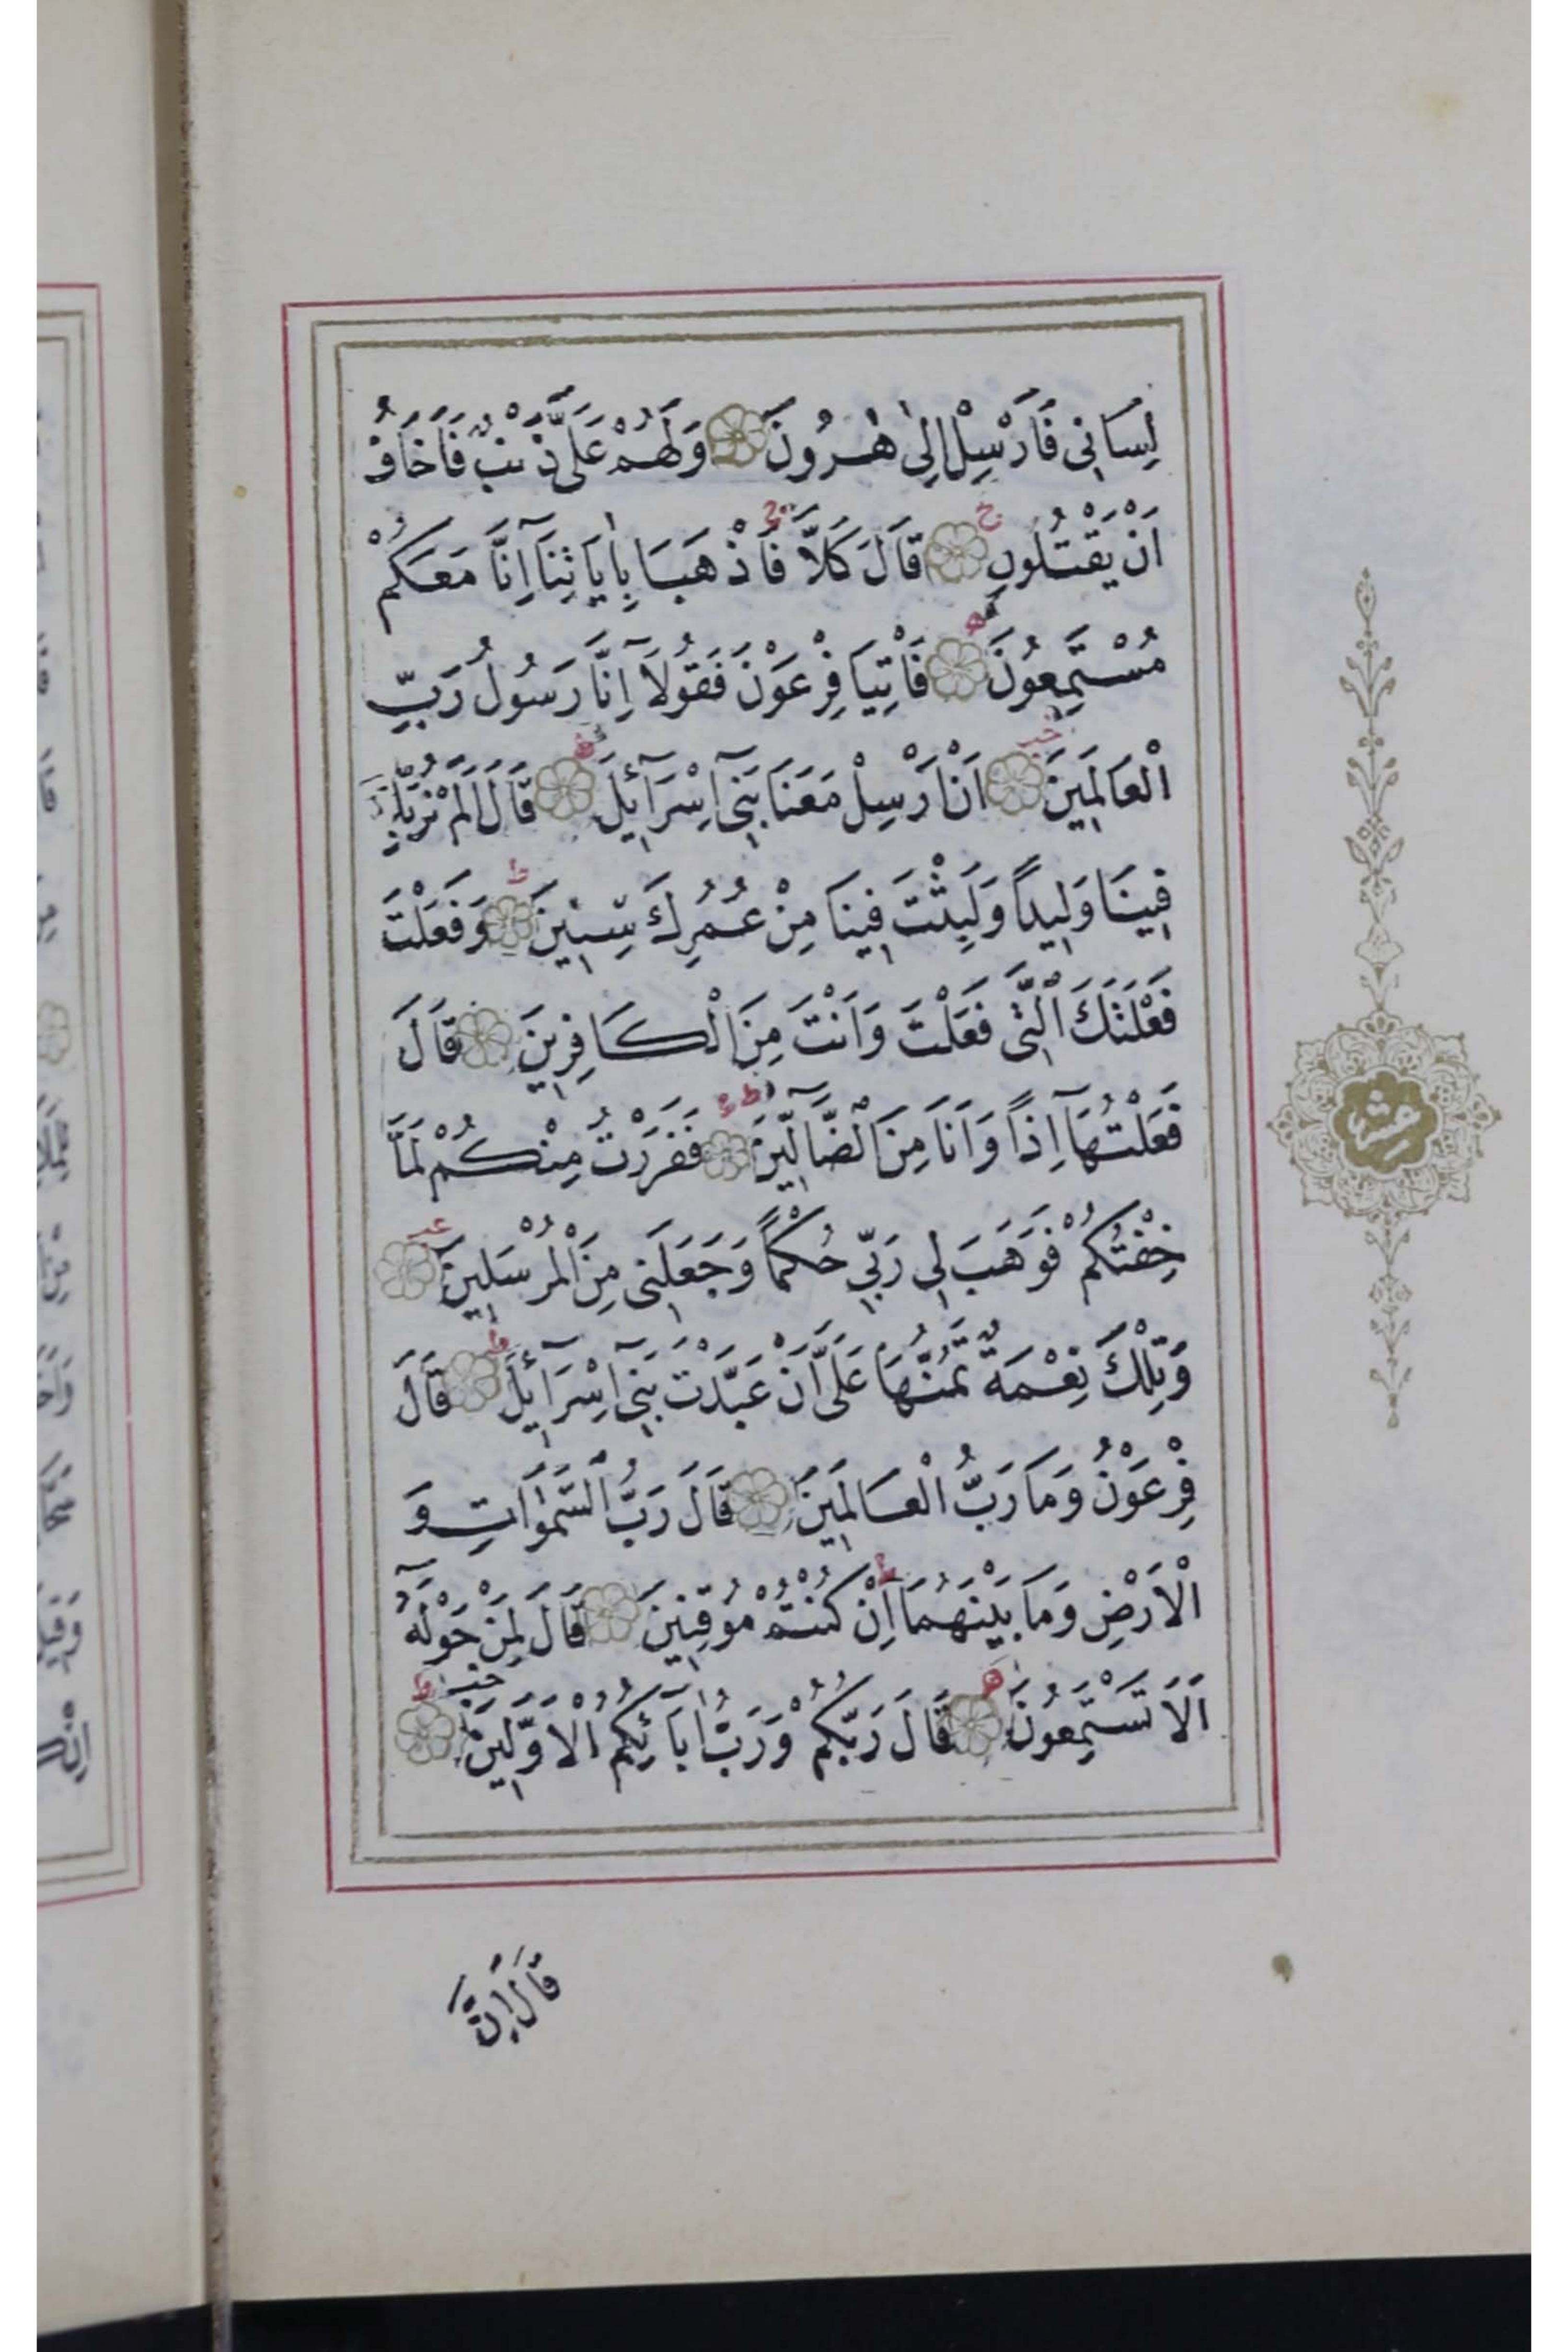 لِسَانِى فَاَرْسِلْ اِلٰى هٰرُونَ وَلَهُمْ عَلَىَّ ذَنْبٌ فَاَخَافُ
اَنْ يَقْتُلُونِ قَالَ كَلَّا فَاذْهَبَا بِاٰيَاتِنَآ اِنَّا مَعَكُمْ
مُسْتَمِعُونَ فَاْتِيَا فِرْعَوْنَ فَقُولَآ اِنَّا رَسُولُ رَبِّ
الْعَالَمِينَ اَنْ اَرْسِلْ مَعَنَا بَنِىٓ اِسْرَآئِيلَ قَالَ اَلَمْ نُرَبِّكَ
فِينَا وَلِيداً وَلَبِثْتَ فِينَا مِنْ عُمُرِكَ سِنِينَ وَفَعَلْتَ
فَعْلَتَكَ الَّتِى فَعَلْتَ وَاَنْتَ مِنَ الْكَافِرِينَ قَالَ
فَعَلْتُهَآ اِذاً وَاَنَا مِنَ الضَّآلِّينَ فَفَرَرْتُ مِنْكُمْ لَمَّا
خِفْتُكُمْ فَوَهَبَ لِى رَبِّى حُكْماً وَجَعَلَنِى مِنَ الْمُرْسَلِينَ
وَتِلْكَ نِعْمَةٌ تَمُنُّهَا عَلَىَّ اَنْ عَبَّدْتَ بَنِىٓ اِسْرَآئِيلَ قَالَ
فِرْعَوْنُ وَمَا رَبُّ الْعَالَمِينَ قَالَ رَبُّ السَّمٰوَاتِ وَ
الْاَرْضِ وَمَا بَيْنَهُمَا اِنْ كُنْتُمْ مُوقِنِينَ قَالَ لِمَنْ حَوْلَهُٓ
اَلَا تَسْتَمِعُونَ قَالَ رَبُّكُمْ وَرَبُّ اٰبَآئِكُمُ الْاَوَّلِينَ
قَالَ اِنَّ
عشر